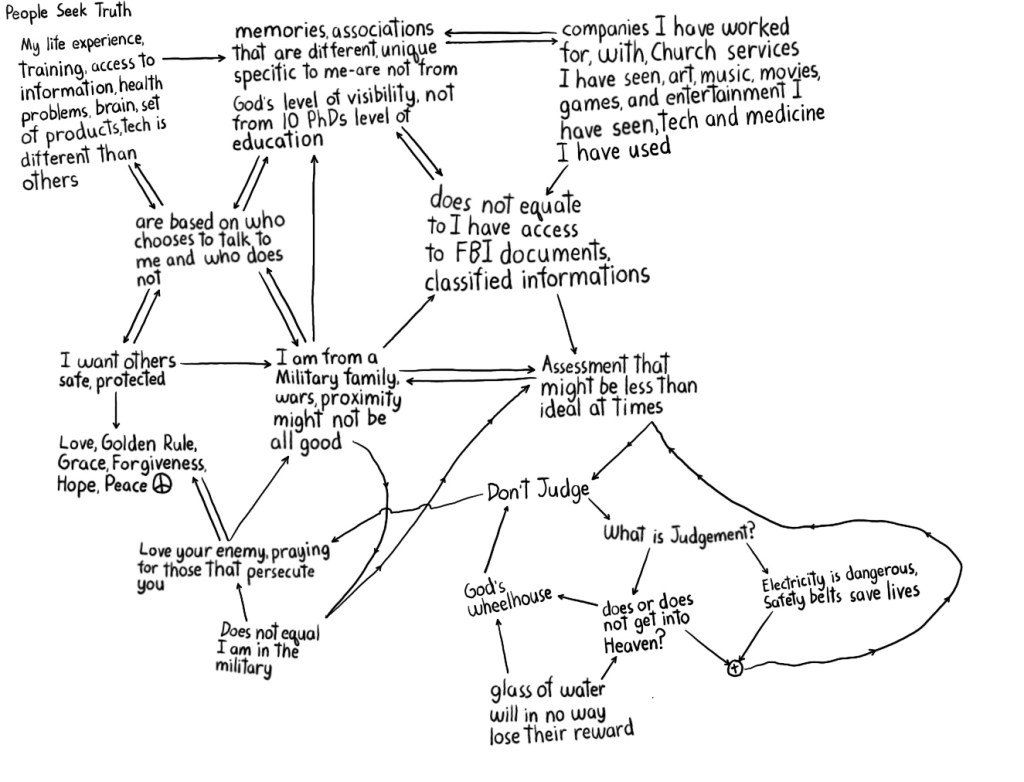 People Seek Truth
My life experience,
Training, access to
information, health
problems, brain, set
of products, Tech is
different than
others
memories, associations
that are different, unique
specific to me-are not from
God's level of visibility, not
from 10 PhDs level of
education
companies I have worked
for, with, Church services
I have seen, art, music, movies,
games, and entertainment I
have seen, tech and medicine
I have used
are based on who
chooses to talk to
me and who does
not
does not equate
to I have access
to FBI documents,
classified informations
I want others
safe, protected
I am from a
Military family,
wars, proximity
might not be
all good
Assessment that
might be less than
ideal at times
Love, Golden Rule,
Grace, Forgiveness,
Hope, Peace ☮
Don't Judge
What is Judgement?
Love your enemy, praying
for those that persecute
you
God's
wheelhouse
does or does
not get into
Heaven?
Electricity is dangerous,
Safety belts save lives
Does not equal
I am in the
military
+
glass of water
will in no way
lose their reward